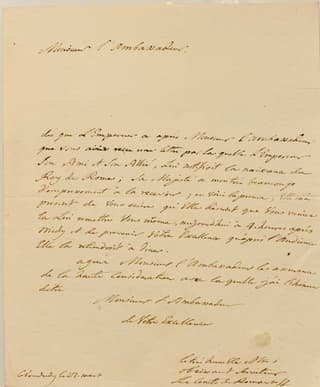 Monsieur l'Ambassadeur.
dès que l'Empereur a appris, Monsieur l'ambassadeur
que vous aviez reçu une lettre par laquelle l'Empereur
son Ami et son Allié, lui notifioit la naissance du
Roy de Rome; Sa Majesté a montré beaucoup
d'empressement à la recevoir;
présent de vous
la lui remettre Vous même, aujourdhuy à 4 heures après
Midy et de prévenir Votre Excellence qu'après l'Audience
Elle la retiendroit à diner.
agréez Monsieur l'Ambassadeur les assurances
de la haute Considération avec laquelle j'ai l'honneur
d'être
Monsieur l'Ambassadeur
de Votre Excellence
Le très humble et très
obéissant serviteur
Le Comte de
ce